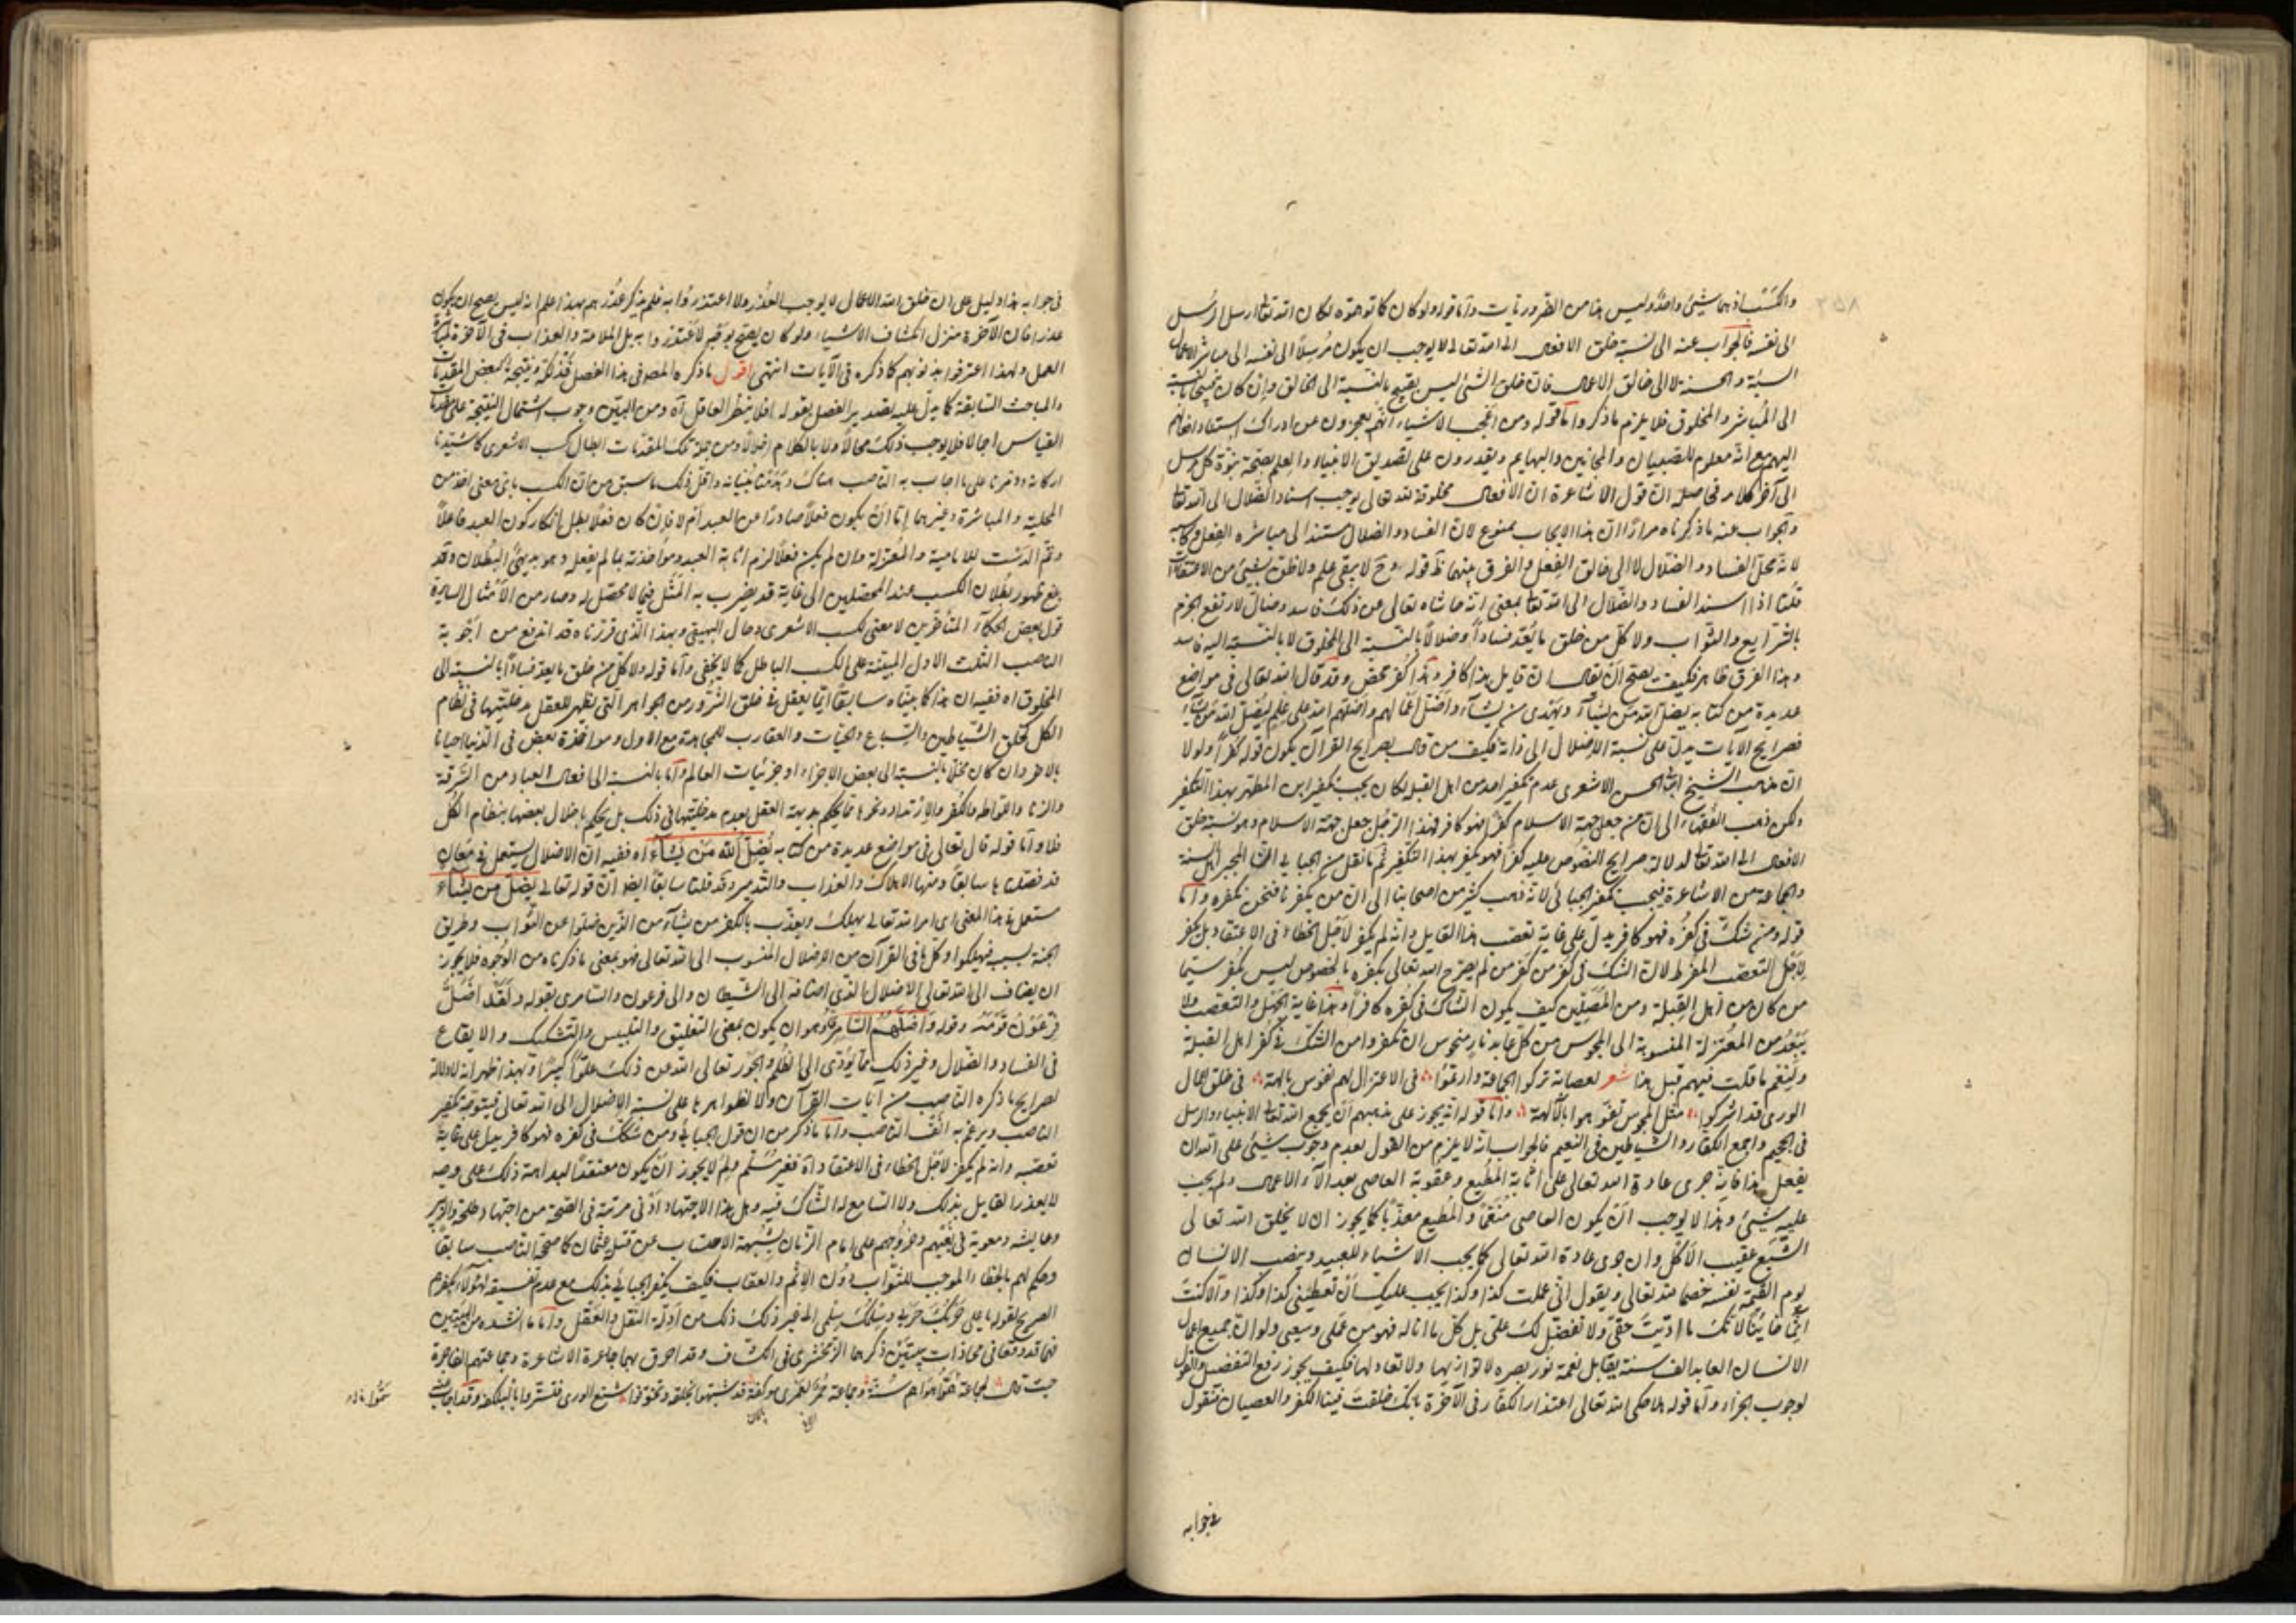 والكسب اذ هما شئ واحد وليس هذا من الضروريات واما قوله ولو كان كما توهموه لكان الله تعالى ارسل الرسل
الى نفسه فالجواب عنه ان نسبة خلق الافعال الى الله تعالى لا يوجب ان يكون مُرسِلًا الى نفسه الى مباشر الاعمال
السيئة والحسنة لا الى خالق الاعمال فان خلق الشئ ليس بقبيح بالنسبة الى الخالق وان كان قبيحا بالنسبة
الى المباشر والمخلوق فلا يلزم ما ذكر واما قوله ومن اعجب الاشياء انهم يعجزون عن ادراك استناد افعالهم
اليهم مع انه معلوم للصبيان والمجانين والبهايم ويقدرون على تصديق الانبياء والعلم بصحة نبوة كل مرسل
الى آخر كلامه فحاصله ان قول الاشاعرة ان الافعال مخلوقة لله تعالى يوجب اسناد الضلال الى الله تعالى
والجواب عنه ما ذكرناه مرارًا ان هذا الايجاب ممنوع لان الفساد والضلال مستند الى مباشره الفعل وكاسبه
لانه محل الفساد والضلال لا الى خالق الفعل والفرق بينهما ظ قوله وح لا يبقى علم ولا ظن بشئ من الاعتقادات
قلنا اذا اسند الفساد والضلال الى الله تعالى بمعنى انه حاشاه تعالى عن ذلك فاسد وضال لارتفع الجزم
بالشرايع والثواب ولا كل من خلق ما يُعَد فسادًا وضلالًا بالنسبة الى المخلوق لا بالنسبة اليه فاسد
وهذا الفرق ظاهر فكيف يصح ان يقال ان قايل هذا كافر وهذا كفر محض وقد قال الله تعالى في مواضع
عديدة من كتابه يضل الله من يشاء ويهدى من يشآء واضل اعمالهم واضله الله على علم ليُضِل الله من يشاء
فصرايح الآيات يدل على نسبة الاضلال الى ذاته فكيف من قال بصرايح القرآن يكون قوله كفرًا ولولا
ان مذهب الشيخ ابى الحسن الاشعرى عدم تكفير احد من اهل القبلة لكان يجب تكفير ابن المطهر بهذا التكفير
ولكن ذهب الفقهاء الى ان من جعل جهة الاسلام كفرًا فهو كافر فهذا الرجل جعل جهة الاسلام وهو نسبة خلق
الافعال الى الله تعالى لدلالة صرايح النصوص عليه كفرًا فهو يكفر بهذا التكفير ثم ما نقل من الجبائى
والجماعة من الاشاعرة فيجب تكفير الجبائى لانه ذهب كثير من اصحابنا الى ان من يكفرنا فنحن نكفره واما
قوله ومن شك في كفره فهو كافر يدل على غاية تعصب هذا القايل وانه لم يكفر لاجل الخطاء في الاعتقاد بل يكفر
لاجل التعصب المفرط لان الشك في كفر من كفر من لم يصرح الله تعالى بكفره بالخصوص ليس بكفر سيما
من كان من اهل القبلة ومن المصلين كيف يكون الشاك في كفره كافرًا وهذا غاية الجهل والتعصب ولا
يَبعُد من المعتزلة المنسوبة الى المجوس من كل عابد نار منحوس ان يكفروا من الشك في كفر اهل القبلة
ولنعم ما قلت فيهم قبل هذا شعر لعصابة تركوا الجماعة وارتموا في الاعتزال لهم نفوس بالهة في خلق اعمال
الورى قد اشركوا مثل المجوس تفوهوا بالآلهة واما قوله انه يجوز على مذهبهم ان يجمع الله تعالى الانبياء والرسل
في الجحيم واجمع الكفار والشياطين في النعيم فالجواب انه لا يلزم من القول بعدم وجوب شئ على الله ان
يفعل هذا فانه جرى عادة الله تعالى على اثابة المطيع وعقوبة العاصى بعد الاعمال ولم يجب
عليه شئ وهذا لا يوجب ان يكون العاصى منعّمًا والمطيع معذّبًا كما يجوز ان لا يخلق الله تعالى
الشبع عقيب الاكل وان جرى عادة الله تعالى كما يجب الاشياء للعبيد وينصب الانسان
يوم القيمة نفسه خصما لله تعالى ويقول انى عملت كذا وكذا يجب عليك ان تعطينى كذا وكذا والا كنت
لانك ما اديت حقى ولا تفضل لك علىّ بل كل ما اناله فهو من عملى وسعيى ولو ان جميع اعمال
الانسان العابد الف سنة يقابل نعمة نور بصره لا توازيها ولا تعادلها فكيف يجوز رفع التفضل والقول
لوجوب الجزاء واما قوله لما حكى الله تعالى اعتذار الكفار في الآخرة بانك خلقت فينا الكفر والعصيان فنقول
في جوابه
في جوابه هذا دليل على ان خلق الله الاعمال لا يوجب العذر ولا اعتذروا به فلم يذكر عذرهم بهذا علم انه ليس يصح ان يكون
عذرا فان الآخرة منزل انكشاف الاشياء ولو كان يصح لاعتذروا به بل الملامة والعذاب في الآخرة لمباشرة
العمل ولهذا اعترفوا بذنوبهم كما ذكره في الآيات انتهى اقول ما ذكره المصـ في هذا الفصل فذلكة ونتيجة لبعض المقدمات
والمباحث السابقة كما يدل عليه تصدير الفصل بقوله افلا ينظر العاقل آه ومن البيّن وجوب اشتمال النتيجة على مقدمات
القياس اجمالا فلا يوجب ذلك محالًا ولا بالكلام اخلالًا ومن جملة تلك المقدمات ابطال كسب الاشعرى كما شيدنا
اركانه وقررنا على ما اجاب به الناصب هناك وهدمنا بنيانه واقل ذلك ما سبق من ان الكسب باى معنى اخذ من
المحلية والمباشرة وغيرهما اما ان يكون فعلًا صادرًا من العبد ام لا فان كان فعلًا بطل انكار كون العبد فاعلًا
وتم الدست للامامية والمعتزلة وان لم يكن فعلًا لزم اثابة العبد ومؤاخذته بما لم يفعله وهو بديهى البطلان وقد
بلغ ظهور بطلان الكسب عند المحصلين الى غاية قد يضرب به المثل فيما لا محصل له وصار من الامثال السايرة
قول بعض الحكماء المتأخرين لا معنى لكسب الاشعرى وحال البهشمى وبهذا الذى قررناه قد اندفع من اجوبة
الناصب الثلث الاول المبتنية على الكسب الباطل كما لا يخفى واما قوله ولا كل من خلق ما يعد فسادًا بالنسبة الى
المخلوق اه ففيه ان هذا كما بيناه سابقًا انما يعقل في خلق الشرور من الجواهر التى يظهر للعقل مدخليتها في نظام
الكل كخلق الشياطين والسباع والحيات والعقارب للمجاهدة مع الاول ومواخذة بعض في الدنيا احيانا
بالآخر وان كان مخلًا بالنسبة الى بعض الاجزاء او جزئيات العالم واما بالنسبة الى افعال العباد من السرقة
والزنا واللواطه والكفر والارتداد ونحوها فما يحكم بديهة العقل بعدم مدخليتها في ذلك بل يحكم باخلال بعضها بنظام الكل
فلا واما قوله قال تعالى في مواضع عديدة من كتابه يُضِلُّ اللهُ مَنْ يَشَاءُ اه ففيه ان الاضلال يستعمل في معان
قد فصلناها سابقا ومنها الاهلاك والعذاب والتدمير وقد قلنا سابقًا ايضا ان قوله تعالى يضل من يشاء
مستعمل في هذا المعنى اى ان الله تعالى يهلك ويعذب بالكفر من يشآء من الذين ضلوا عن الثواب وطريق
الجنة بسببه فيهلكوا وكل ما في القرآن من الاضلال المنسوب الى الله تعالى فهو بمعنى ما ذكرناه من الوجوه فلا يجوز
ان يضاف الى الله تعالى الاضلال الذى اضافه الى الشيطان والى فرعون والسامرى بقوله ولقد اضل
فرعون قومه وقوله واضلهم السامرى وهو ان يكون بمعنى التغليق والتلبيس والتشكيك والايقاع
في الفساد والضلال وغير ذلك مما يؤدى الى الظلم والجور تعالى الله عن ذلك علوًا كبيرًا وبهذا ظهر انه لا دلالة
لصرايح ما ذكره الناصب من آيات القرآن ولا لظواهرها على نسبة الاضلال الى الله تعالى فيتوجه تكفير
الناصب ويرغم به انف الناصب واما ما ذكر من ان قول الجبائى ومن شكك في كفره فهو كافر يدل على غاية
تعصبه وانه لم يكفر لاجل الخطاء في الاعتقاد آه فغير مسلم ولم لا يجوز ان يكون معتقدًا لبداهة ذلك على وجه
لا يعذر القايل بذلك ولا السامع له الشاك فيه وهل هذا الاجتهاد ادنى مرتبة في الصحة من اجتهاد طلحة والزبير
وعايشة ومعوية في بغيهم وخروجهم على امام الزمان بشبهة الاحتساب عن قتل عثمان كما صححه الناصب سابقًا
وحكم لهم بالخطاء الموجب للثواب دون الاثم والعقاب فكيف يكفر الجبائى بذلك مع عدم تفسيقه لهؤلاء بكفرهم
الصريح لقوله يا على حربك حربى وسلمك سلمى الى غير ذلك من ادلة النقل والعقل واما ما انشده من البيتين
فهما قد وقعا في محاذات بيتين ذكرهما الزمخشرى في الكشاف وقد احرق بهما جماعة الاشاعرة وجماعتهم الفاجرة
حيث قال لجماعة سموا هواهم سنة وجماعة حُمُرٌ لعمرى موكفه قد شبهوه بخلقه وتخوفوا شنع الورى فتستروا بالبلكفه وقد اجاب